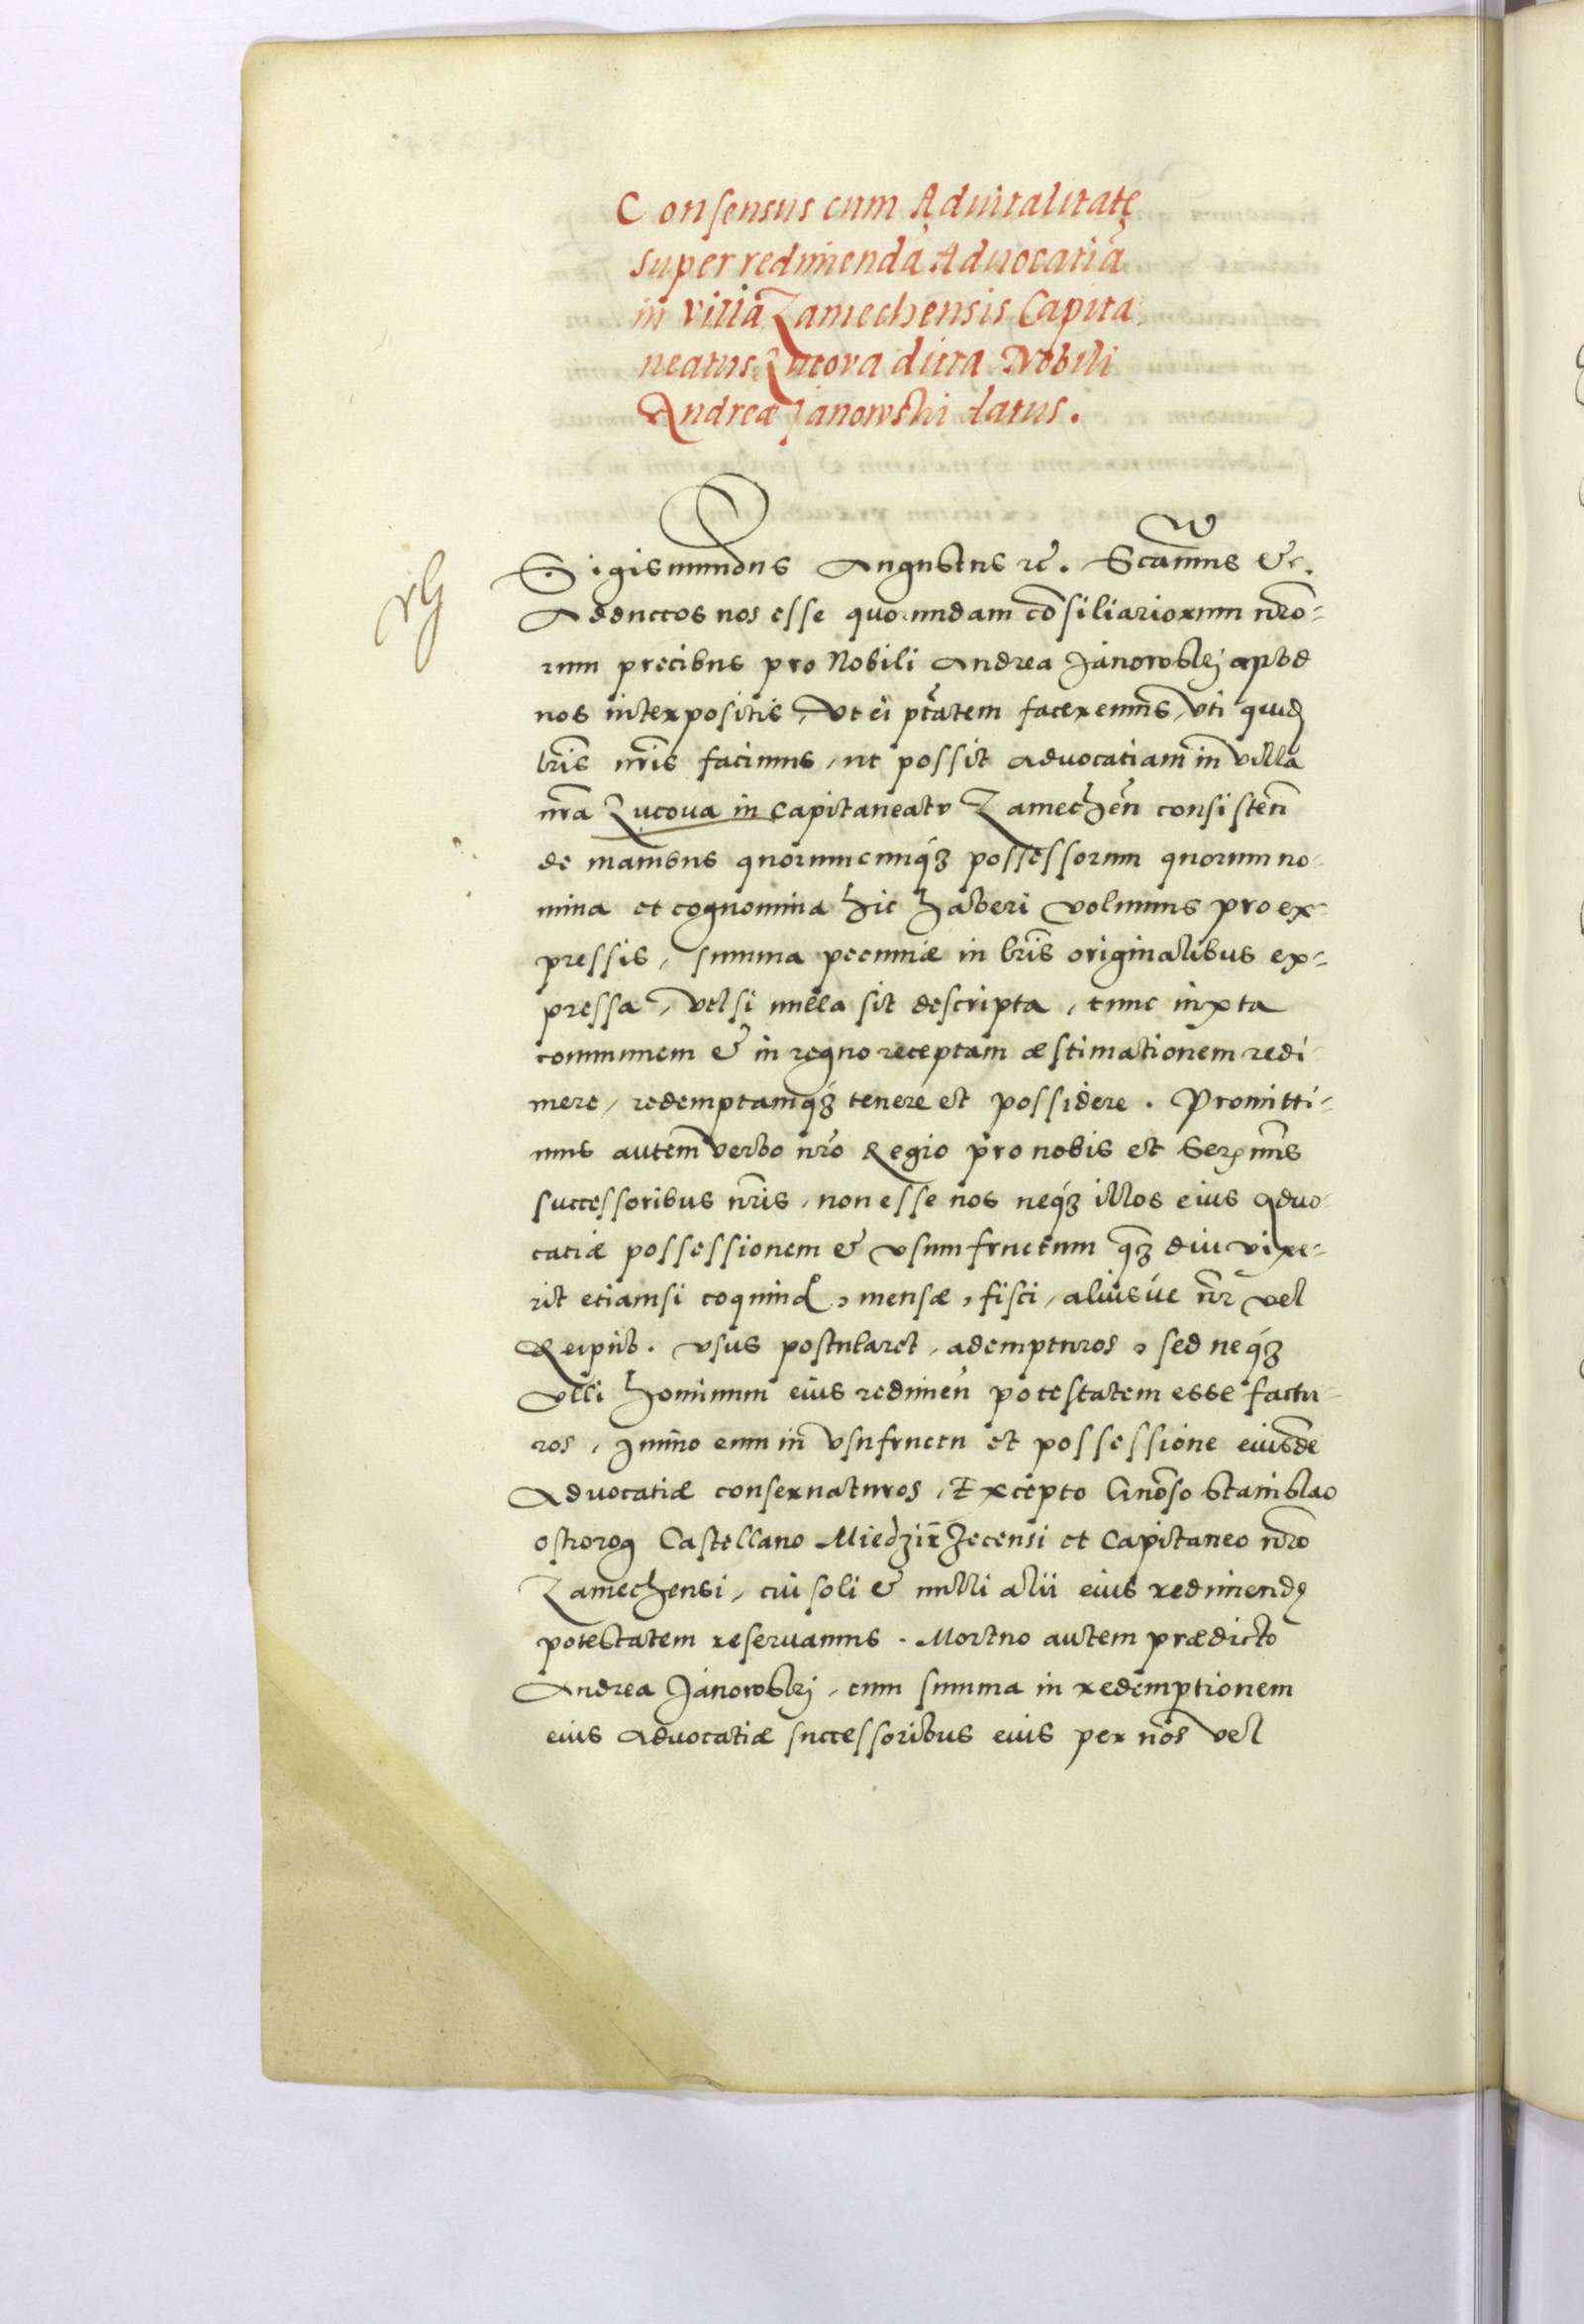 Consensus cum Aduitalitate
super redimendā Aduocatiā
in villa Zamechensis Capita
neatus Zucova dicta Nobili
Andreæ Janowski datus.
Sigismundus Augustus rc. Scamus &c.
Adductos nos esse quorundam cōsiliariorum nr̄o-
rum precibus pro Nobili Andrea Janowskj apud
nos interpositis, vt ei ptātem faceremus, vti quidē
lr̄is nr̄is facimus, ut possit aduocatiam in villa
nr̄a Zucoua in Capitaneatu Zamechen̄ consisten̄
de manibus quorumcunqꝫ possessorum quorum no-
mina et cognomina hic haberi volumus pro ex-
pressis, summa pecuniæ in lr̄is originalibus ex-
pressa, vel si nulla sit descripta, tunc iuxta
communem & in regno receptam æstimationem redi-
mere, redemptamqꝫ tenere et possidere. Promitti-
mus autem verbo nr̄o Regio pro nobis et Serꝫmis
successoribus nr̄is, non esse nos neqꝫ illos eius aduo-
catiæ possessionem & vsumfructum qꝫ diu vixe-
rit etiamsi coquinæ, mensæ, fisci, aliusúe nr̄ vel
Reipub. vsus postularet, adempturos, sed neqꝫ
vlli hominum eius redimen̄ potestatem esse factu-
ros, Immo eum in vsufructu et possessione eiusdē
Aduocatiæ conseruaturos, Excepto Gn̄oso Stanislao
ostrorog Castellano Miedzirzecensi et Capitaneo nr̄o
Zamechensi, cui soli & nulli alii eius redimendę
potestatem reseruamus. Mortuo autem prædicto
Andrea Janowskj, cum summa in redemptionem
eius aduocatiæ successoribus eius per nos vel